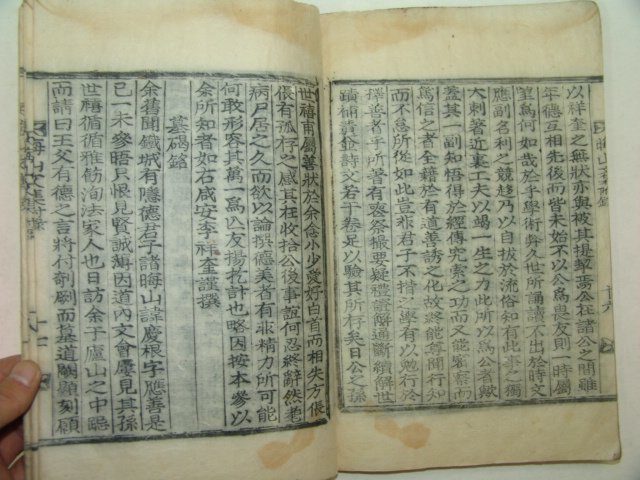 以祥奎之無狀亦與被其提挈焉公在諸公之間雖
年德互相先後而皆未始不以公爲畏友則一時屬
望爲何如哉於乎學術弊久世所誦讀不出於時文
應副名利之競趍乃以自拔於流俗知有此事之獨
大刺著近裏工夫以竭一生之力此所以爲公者歟
蓋其一副知悟得於經傳究索之功而又能
爲信之者學者全歸於有道善誘之化故終能篤行知
而不怠所從如此豈非君子不措之學有以勉行於
撲善者乎所著有喪祭撮要疑禮證解通斷續解世
蹟補黃金詩文若干卷足以驗其所行矣日公之孫
世禧甫屬善狀於余余小少愛好白首而相失方倀
倀有孤存之感其在收拾公後事誼何忍終辭然老
病尸居之久而欲以論撰德美者有非精力所可能
何敢形容其萬一爲匹友揚扢計也略因按本參以
余所知者如右咸安李祥奎謹撰
墓碣銘
余舊聞鐵城有隱德君子諸晦山諱慶根字應善是
已一未參晤只恨見賢誠薄因道內文會屢見其孫
世禧循循雅飭洵法家人也日訪余于廬山之中
而請曰王父有德之言將付剞劂而墓道闕顯刻願